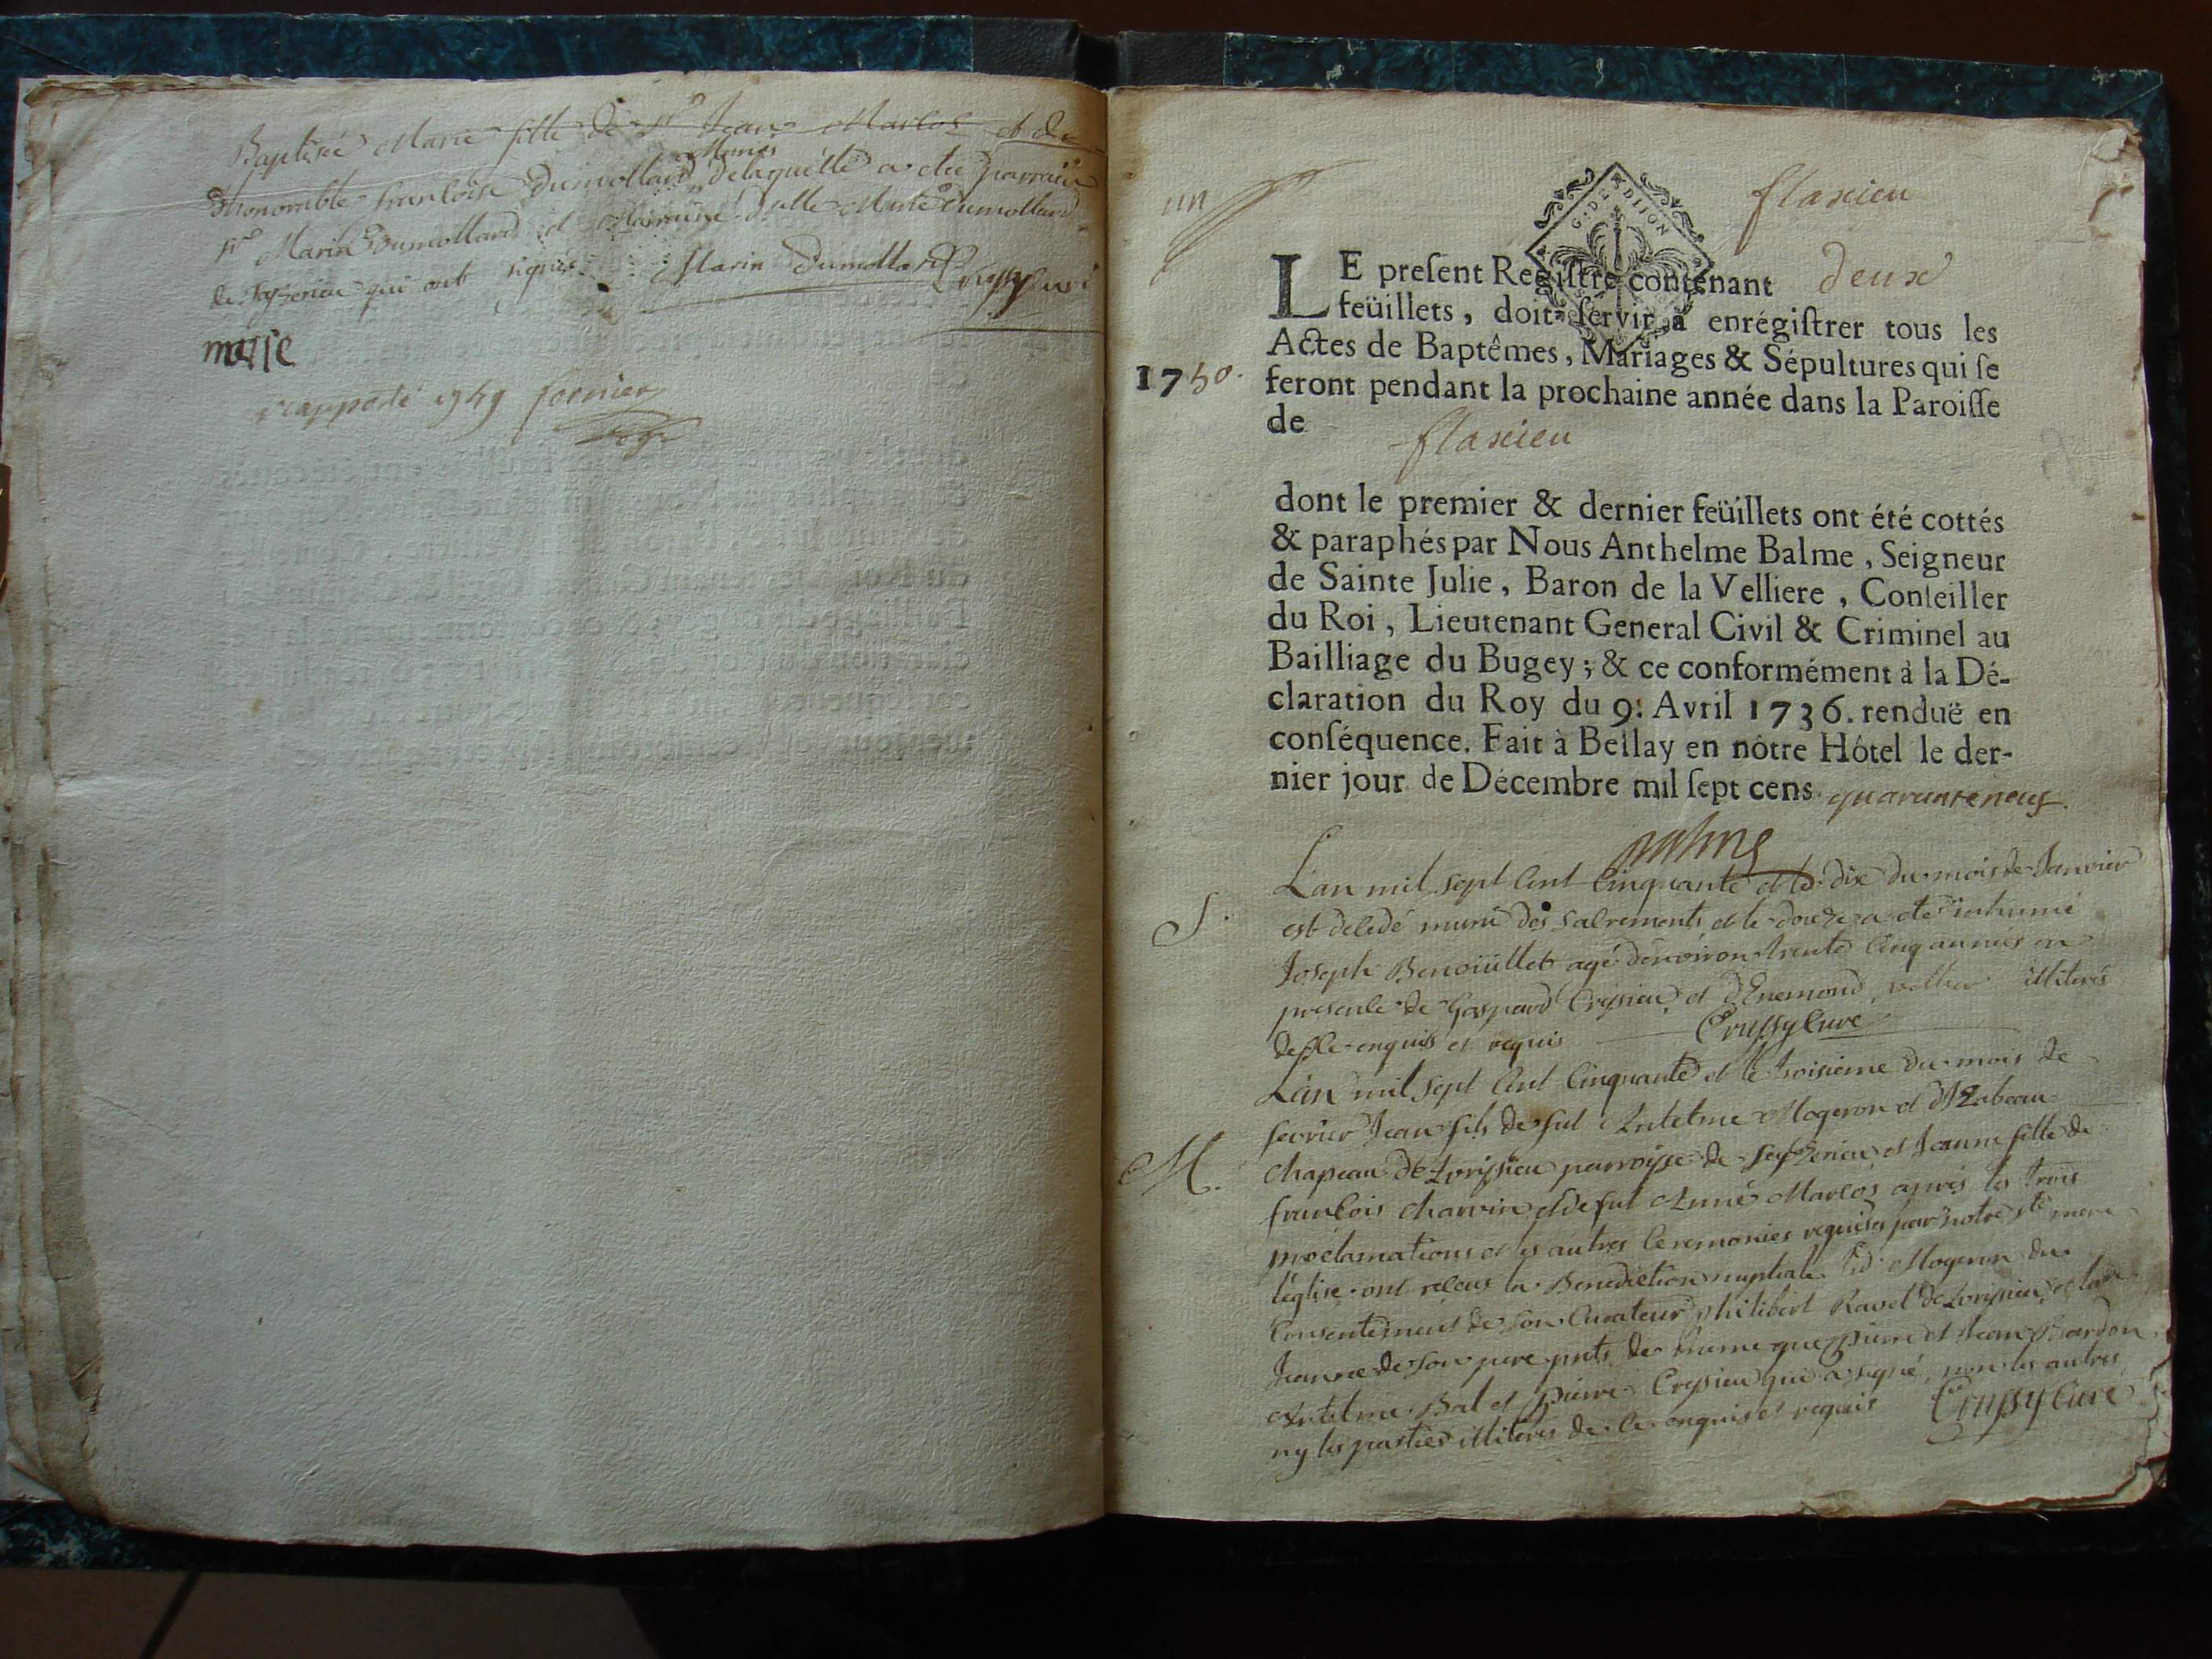 Baptisée Marie fille de Sr Jean Marcos et de
mariés
honorable francoise Dumollard, delaquelle a eté parrain
Sr Marin Dumollard et Marraine Dlle Dumollard
de qui ont signés Marin Dumollard Crussy curé
rapporté 1749
un
flaxieu
G. DE DIJON
LE preſent Regiſtre contenant deux
feüillets, doit ſervir à enrégiſtrer tous les
Actes de Baptêmes, Mariages & Sépultures qui ſe
1750.
feront pendant la prochaine année dans la Paroiſſe
de flaxieu
dont le premier & dernier feüillets ont été cottés
& paraphés par Nous Anthelme Balme, Seigneur
de Sainte Julie, Baron de la Velliere, Conſeiller
du Roi, Lieutenant General Civil & Criminel au
Bailliage du Bugey; & ce conformément à la Dé-
claration du Roy du 9. Avril 1736. renduë en
conſéquence. Fait à Bellay en nòtre Hôtel le der-
nier jour de Décembre mil ſept cens quaranteneuf.
Balme
L'an mil sept cent cinquante et le dix du mois de Janvier
S.
est decedé muni des sacrements et le douze a eté inhumé
Joseph Benoiüllet agé d'environ trente cinq années en
presence de Gaspard Crysieu et d'Enemond illiterés
de ce enquis et requis Crussy curé
L'an mil sept cent cinquante et le troisieme du mois de
fevrier Jean fils de fut Antelme Mogeron et d'Izabeau
M.
chapeau de Lorissieu parroisse de et Jeanne fille de
francois charvin et de fut Anne Marcos apres les trois
proclamations et les autres ceremonies requises par notre ste mere
l'église ont receus la Benediction nuptiale led. Mogeron du
consentement de son curateur philibert Ravel de Lorissieu et la
Jeanne de son pere pnts de meme que pierre et Jean Bardon
Antelme Bal et pierre Crysieu qui a signé, non les autres
ny les parties illiterés de ce enquis et requis Crussy curé